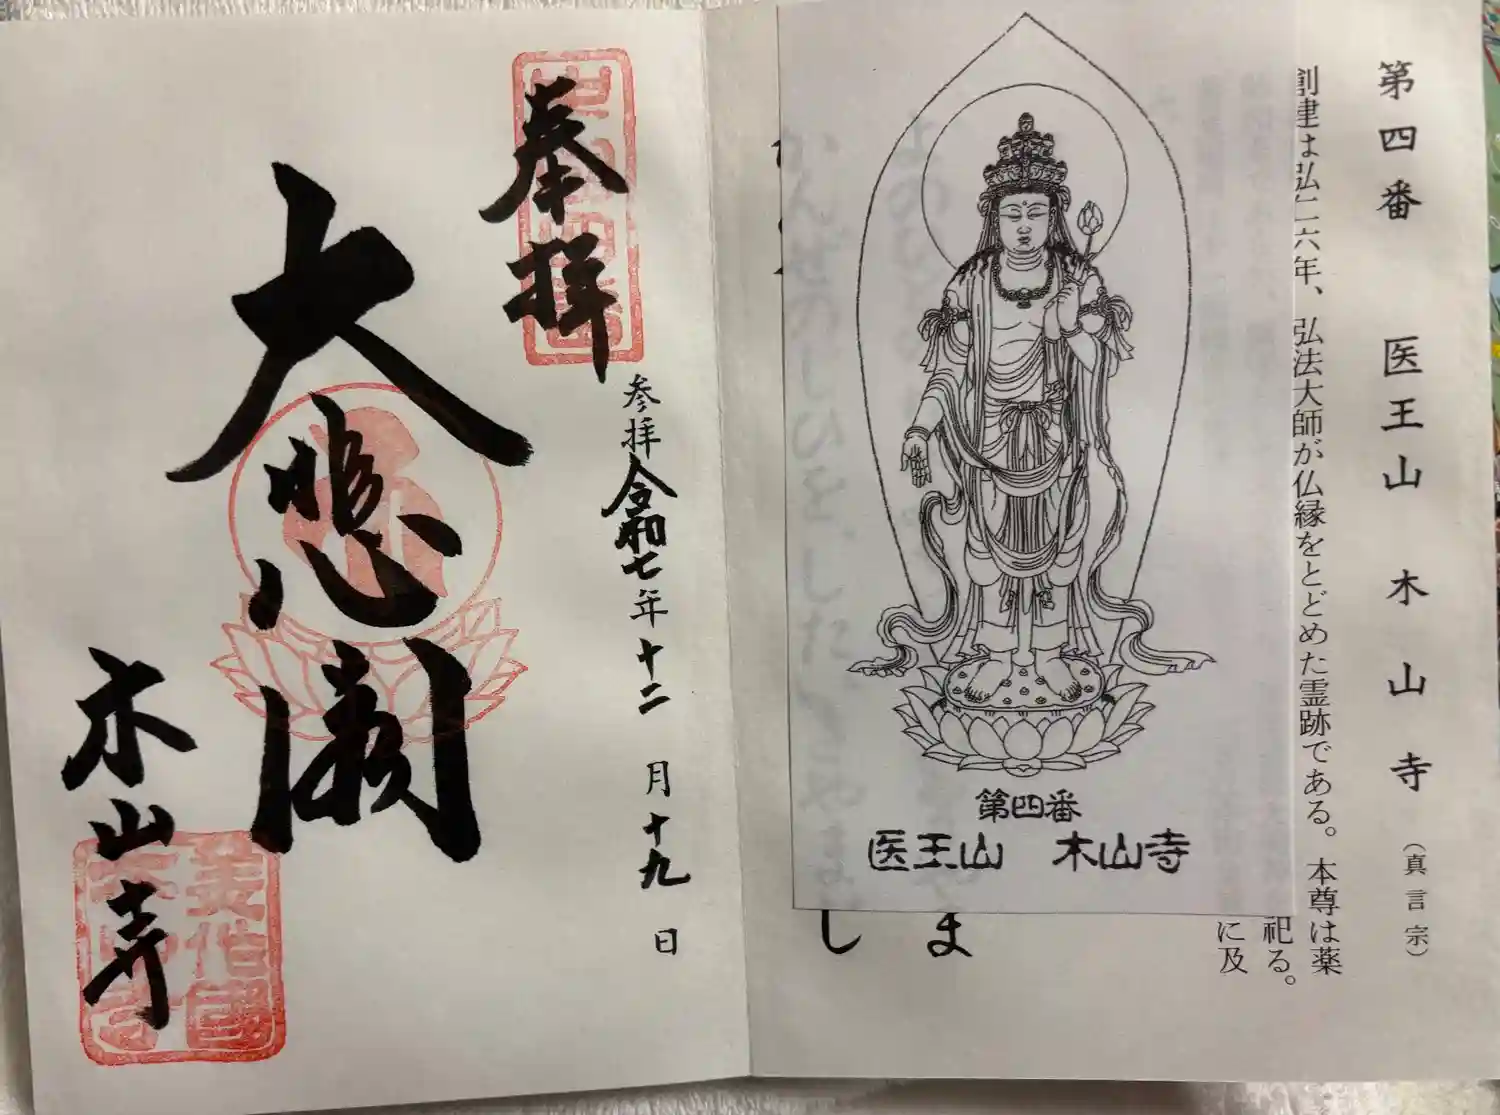 第四番 医王山 木山寺 （真言宗）
創建は弘仁六年、弘法大師が仏縁をとどめた霊跡である。本尊は薬
祀る。
に及
第四番
医王山 木山寺
ま
し
奉拝
参拝 令和七年 十二月十九日
大悲閣
木山寺
美作国
木山寺